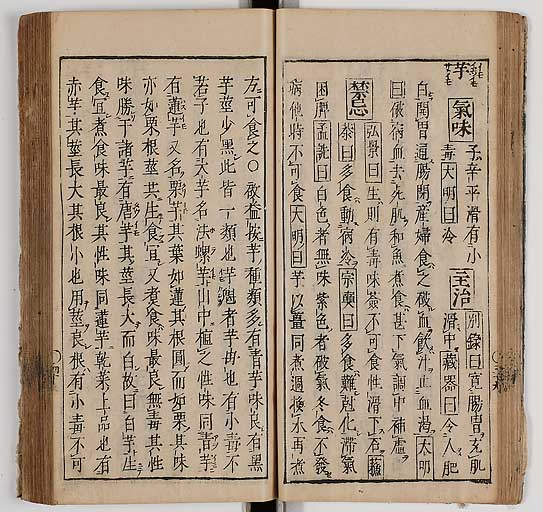 芋 氣味 子辛平滑有小
毒大明曰冷
主治 別錄曰寬腸胃充肌
滑中藏器曰令人肥
白開胃通腸閉產婦食之破血飮汁止血渴大明
曰破宿血去死肌和魚煮食甚下氣調中補虛
禁忌 弘景曰生則有毒味莶不可食性滑下石蘓
恭曰多食動宿冷宗奭曰多食難尅化滯氣
困脾孟詵曰白色者無味紫色者破氣冬食不發
病他時不可食大明曰芋以薑同煮過換水再煮
方可食之〇啟益按芋種類多有青芋味良有黑
芋莖少黑此皆一類也芋魁者芋母也有小毒不
若子也有大芋名法螺芋山中植之性味同青芋
有蓮芋又名栗芋其葉如蓮其根圓而如栗其味
亦如栗根莖共生食宜又煮食味最良無毒其性
味勝于諸芋有唐芋其莖長大而白故曰白芋生
食宜煮食味最良其性味同蓮芋乾葉上品也有
赤芋其莖長大其根小也用莖良根有小毒不可